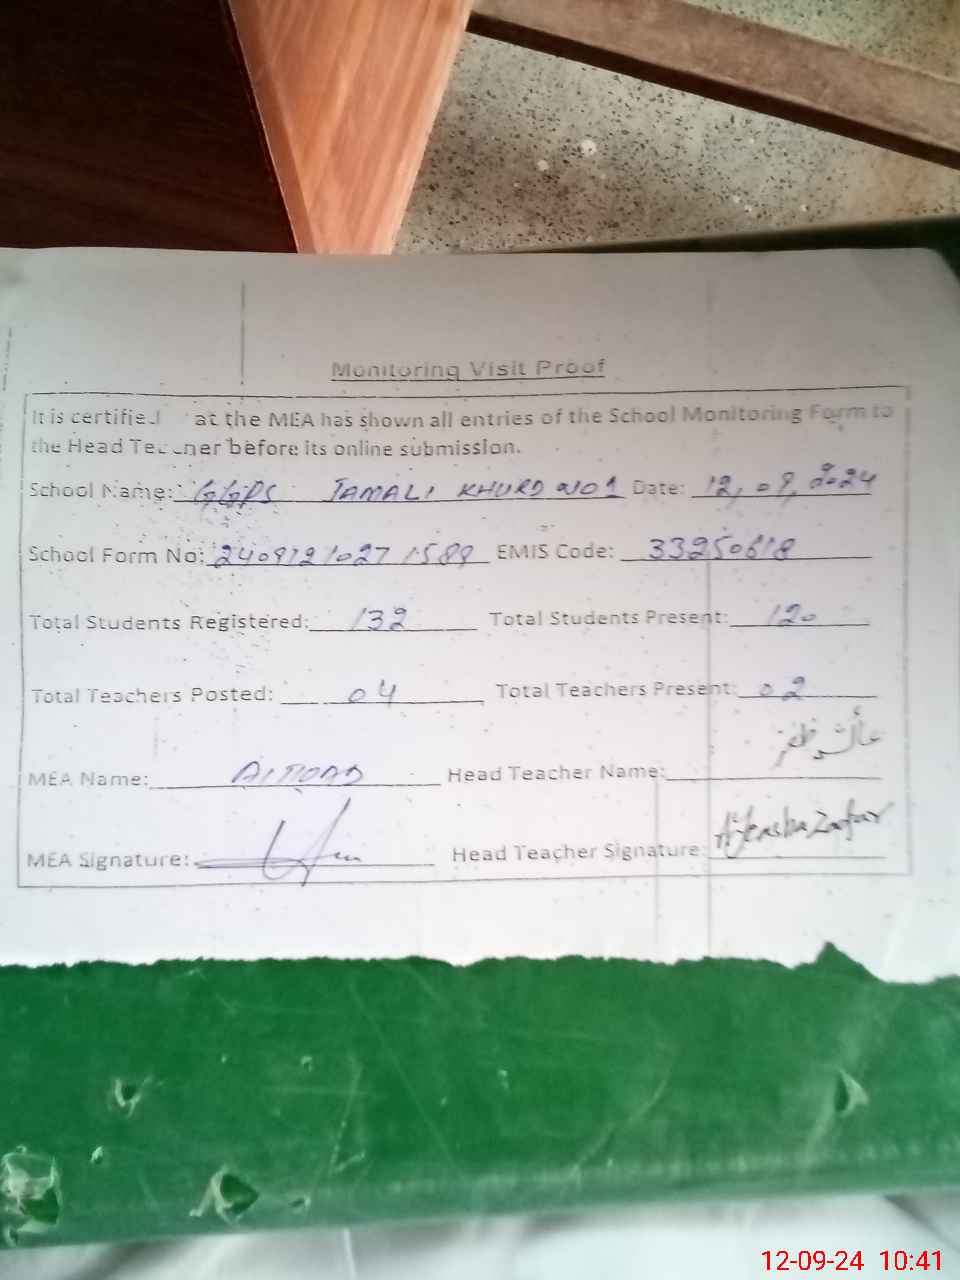 Monitoring Visit Proof
It is certified at the MEA has shown all entries of the School Monitoring Form to
the Head Teacher before its online submission.
School Name: GGPS JAMALI KHURD NO1 Date: 12, 09, 2024
School Form No: EMIS Code: 33250618
Total Students Registered: 132 Total Students Present: 120
Total Teachers Posted: 04 Total Teachers Present: 02
MEA Name: Head Teacher Name: ظفر
MEA Signature: Head Teacher Signature: Ayeasha Zafar
12-09-24 10:41